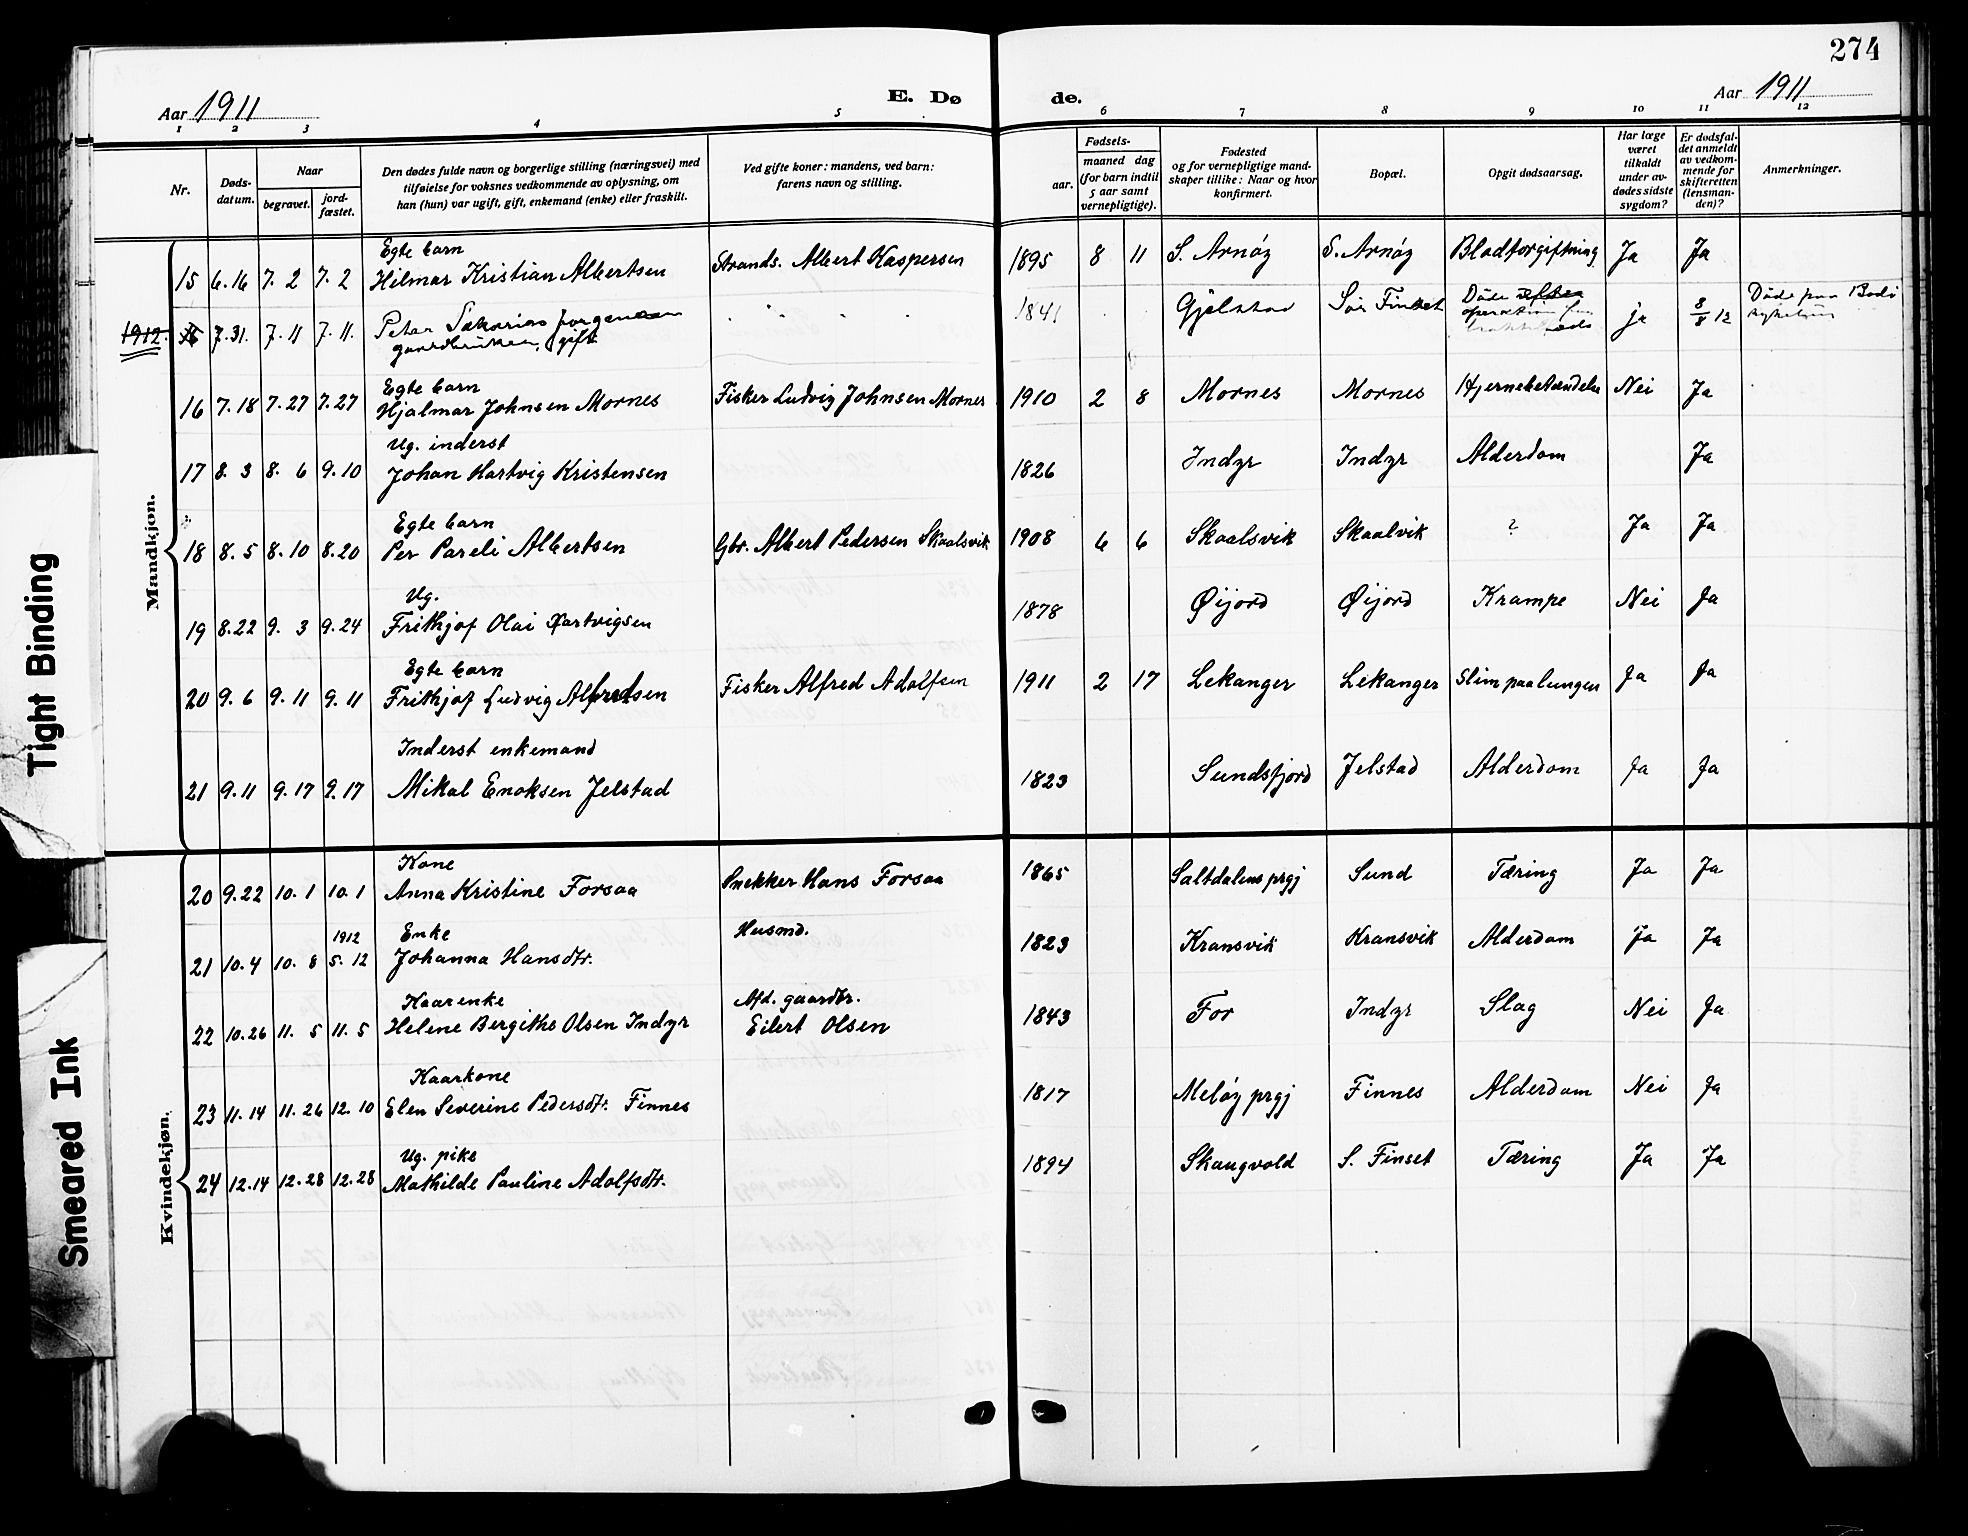 274
Aar 1911
E. Dø
de.
Aar 1911
1 2 3 4 5 6 7 8 9 10 11 12
Nr.
Døds-
datum.
Naar
begravet.
jord-
fæstet.
Den dødes fulde navn og borgerlige stilling (næringsvei) med
tilføielse for voksnes vedkommende av oplysning, om
han (hun) var ugift, gift, enkemand (enke) eller fraskilt.
Ved gifte koner: mandens, ved barn:
farens navn og stilling.
Fødsels-
aar.
maaned dag
(for barn indtil
5 aar samt
vernepligtige).
Fødested
og for vernepligtige mand-
skaper tillike: Naar og hvor
konfirmert.
Bopæl.
Opgit dødsaarsag.
Har læge
været
tilkaldt
under av-
dødes sidste
sygdom?
Er dødsfal-
det anmeldt
av vedkom-
mende for
skifteretten
(lensman-
den)?
Anmerkninger.
Mandkjøn.
Egte barn
15 6.16 7. 2 7. 2 Hilmar Kristian Albertsen Strands. Albert Kaspersen 1895 8 11 S. Arnøy S. Arnøy Blodforgiftning Ja Ja
1912. 7.31. 7. 11 7. 11. Peter Sakarias Jørgensen 1841 Gjelstad Sør Finset Døde efter ja 8/8 12 Døde paa Bodø
gaardbruker, gift operation sykehus
Egte barn
16 7.18 7.27 7.27 Hjalmar Johnsen Mornes Fisker Ludvig Johnsen Mornes 1910 2 8 Mornes Mornes Hjernebetændelse Nei Ja
Ug. inderst
17 8. 3 8. 6 9.10 Johan Hartvig Kristensen 1826 Indyr Indyr Alderdom Ja
Egte barn
18 8. 5 8.10 8.20 Per Pareli Albertsen Gbr. Albert Pedersen Skaalsvik 1908 6 6 Skaalsvik Skaalvik ? Ja Ja
Ug.
19 8.22 9. 3 9.24 Frithjof Olai Hartvigsen 1878 Øijord Øijord Krampe Nei Ja
Egte barn
20 9. 6 9. 11 9. 11 Frithjof Ludvig Alfredsen Fisker Alfred Adolfsen 1911 2 17 Lekanger Lekanger Slim paa lungen Ja Ja
Inderst enkemand
21 9.11 9.17 9.17 Mikal Enoksen Jelstad 1823 Sundsfjord Jelstad Alderdom Ja Ja
Kvindekjøn.
Kone
20 9.22 10. 1 10. 1 Anna Kristine Forsaa Snekker Hans Forsaa 1865 Saltdalens prgj Sund Tæring Ja Ja
1912 Enke Husmd.
21 10.4 10. 8 5. 12 Johanna Hansdtr. 1823 Kransvik Kransvik Alderdom Ja Ja
Kaarenke Afd. gaardbr.
22 10.26 11. 5 11. 5 Helene Bergithe Olsen Indyr Eilert Olsen 1843 For Indyr Slag Nei Ja
Kaarkone
23 11.14 11.26 12.10 Elen Severine Pedersdtr. Finnes 1817 Meløy prgj Finnes Alderdom Nei Ja
Ug. pike
24 12.14 12.28 12.28 Mathilde Pauline Adolfsdtr. 1894 Skaugvold S. Finset Tæring Ja Ja
Tight Binding
Smeared Ink